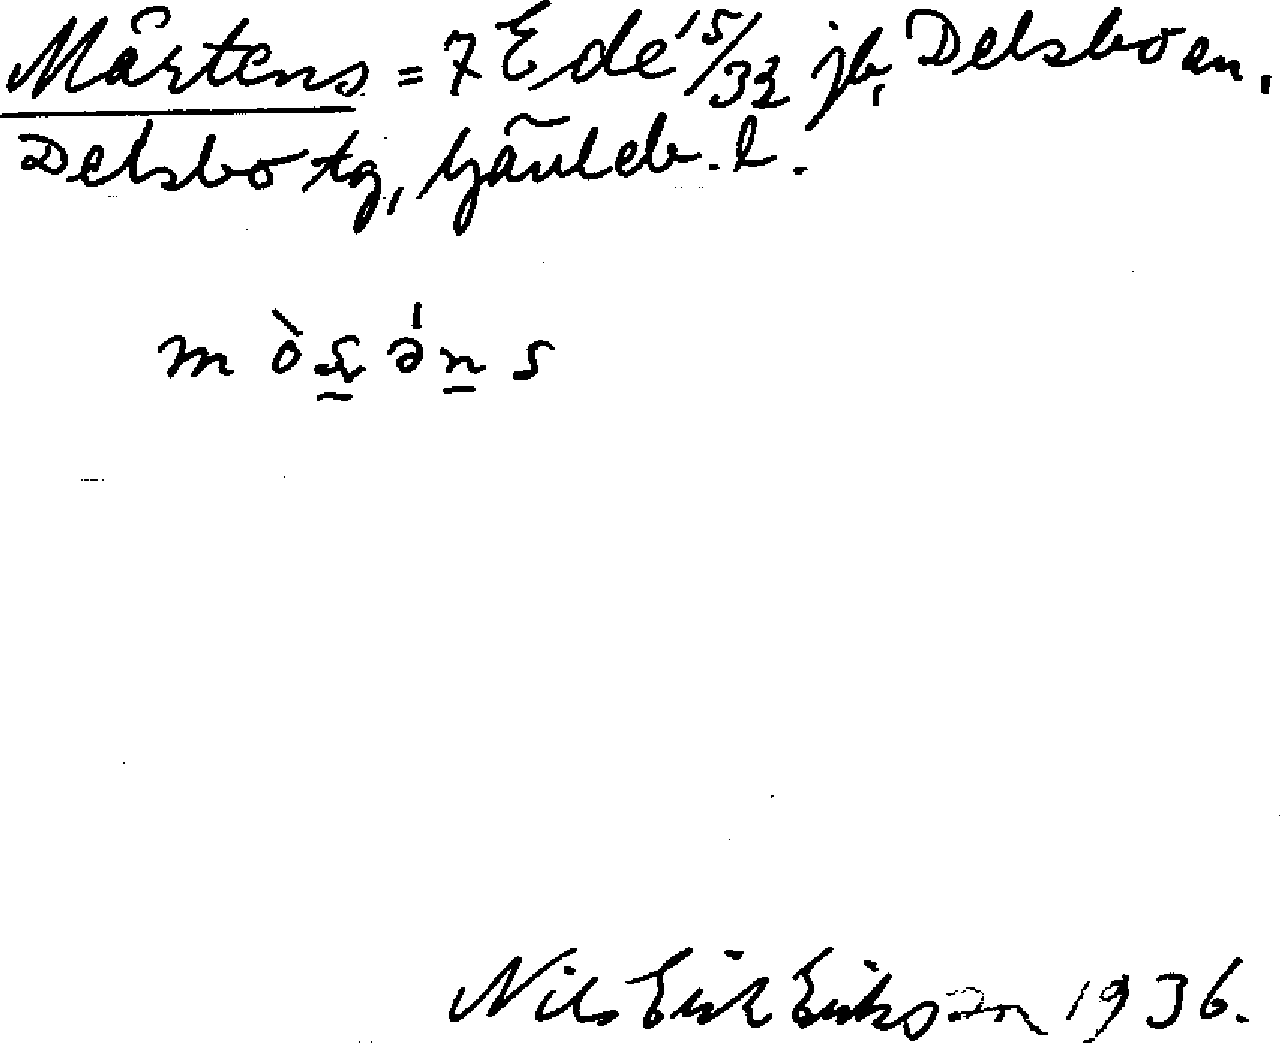 Mårtens = 7 Ede 15/32 jb, Delsbo en.
Delsbo tg, Gävleb. l.
Nils Erik Eriksson 1936.